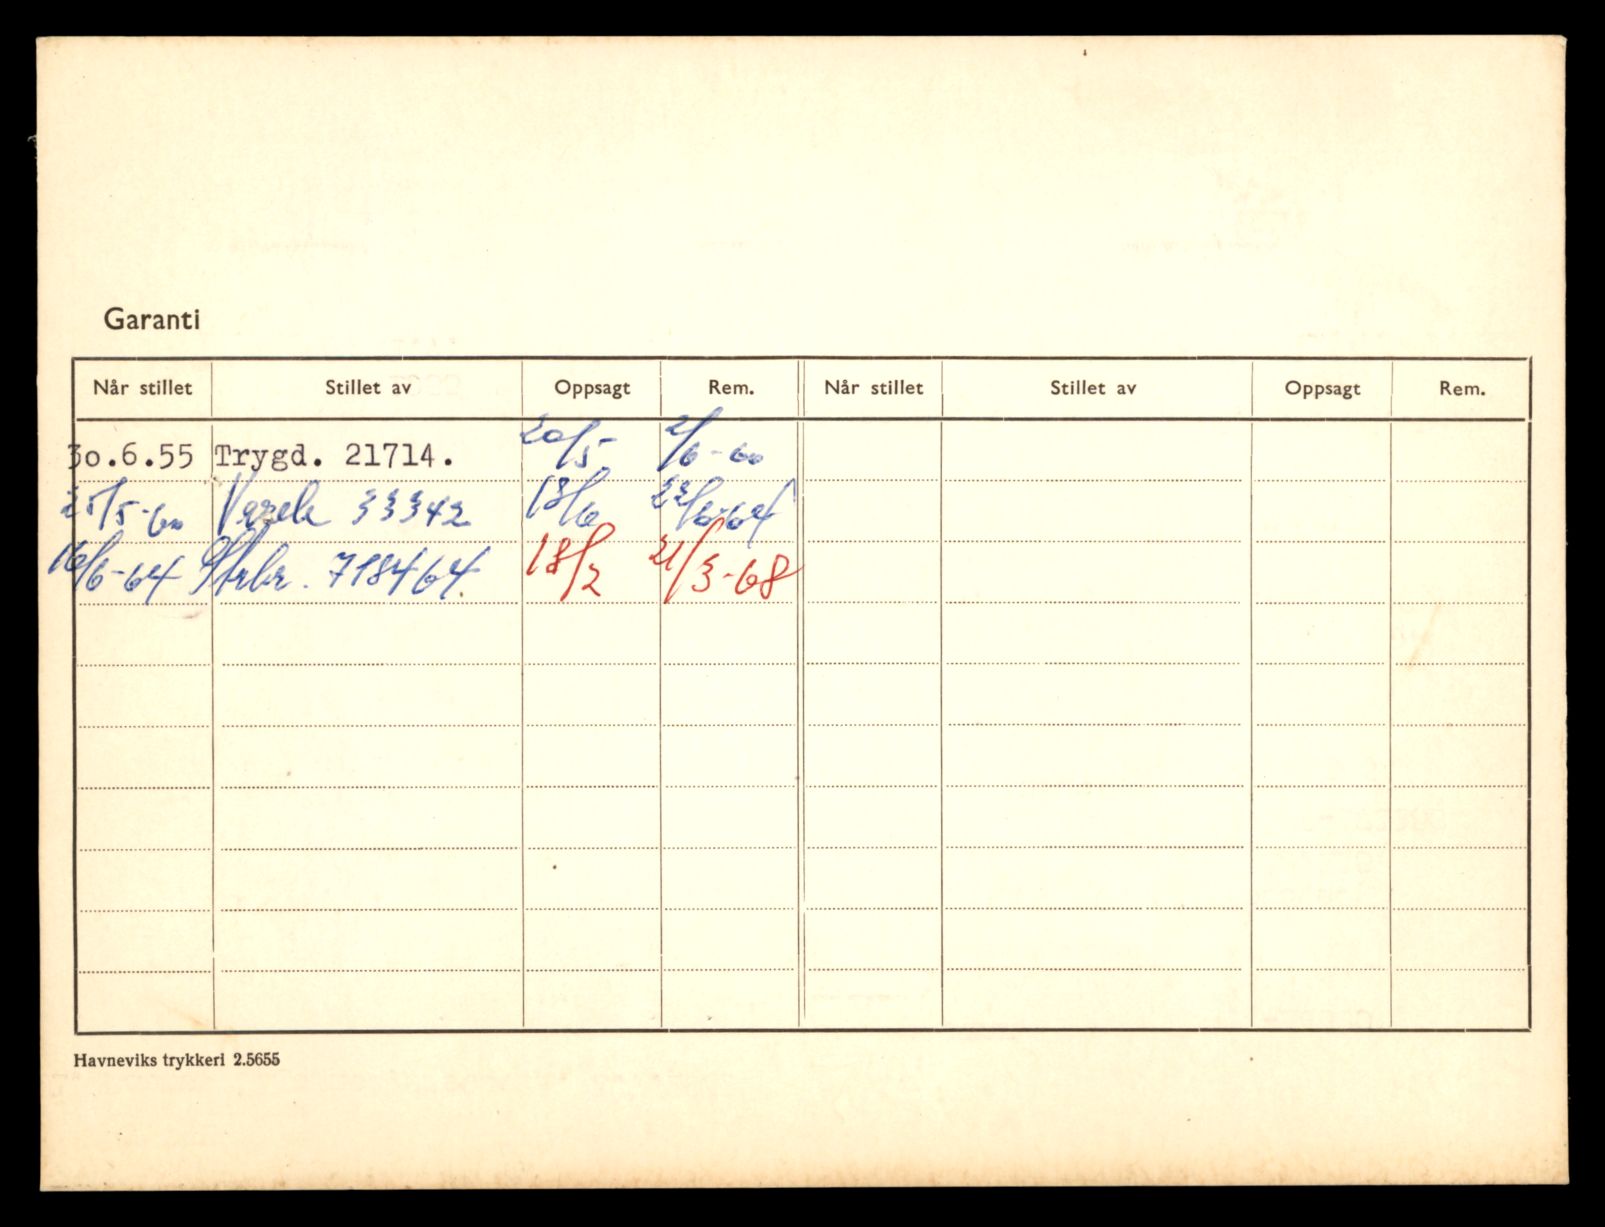 Garanti
Når stillet Stillet av Oppsagt Rem. Når stillet Stillet av Oppsagt Rem.
30.6.55 Trygd. 21714. 20/5 2/6-60
25/5-60 33342 18/6 22/6-64
16/6-64 718464. 18/2 21/3-68
Havneviks trykkeri 2.5655